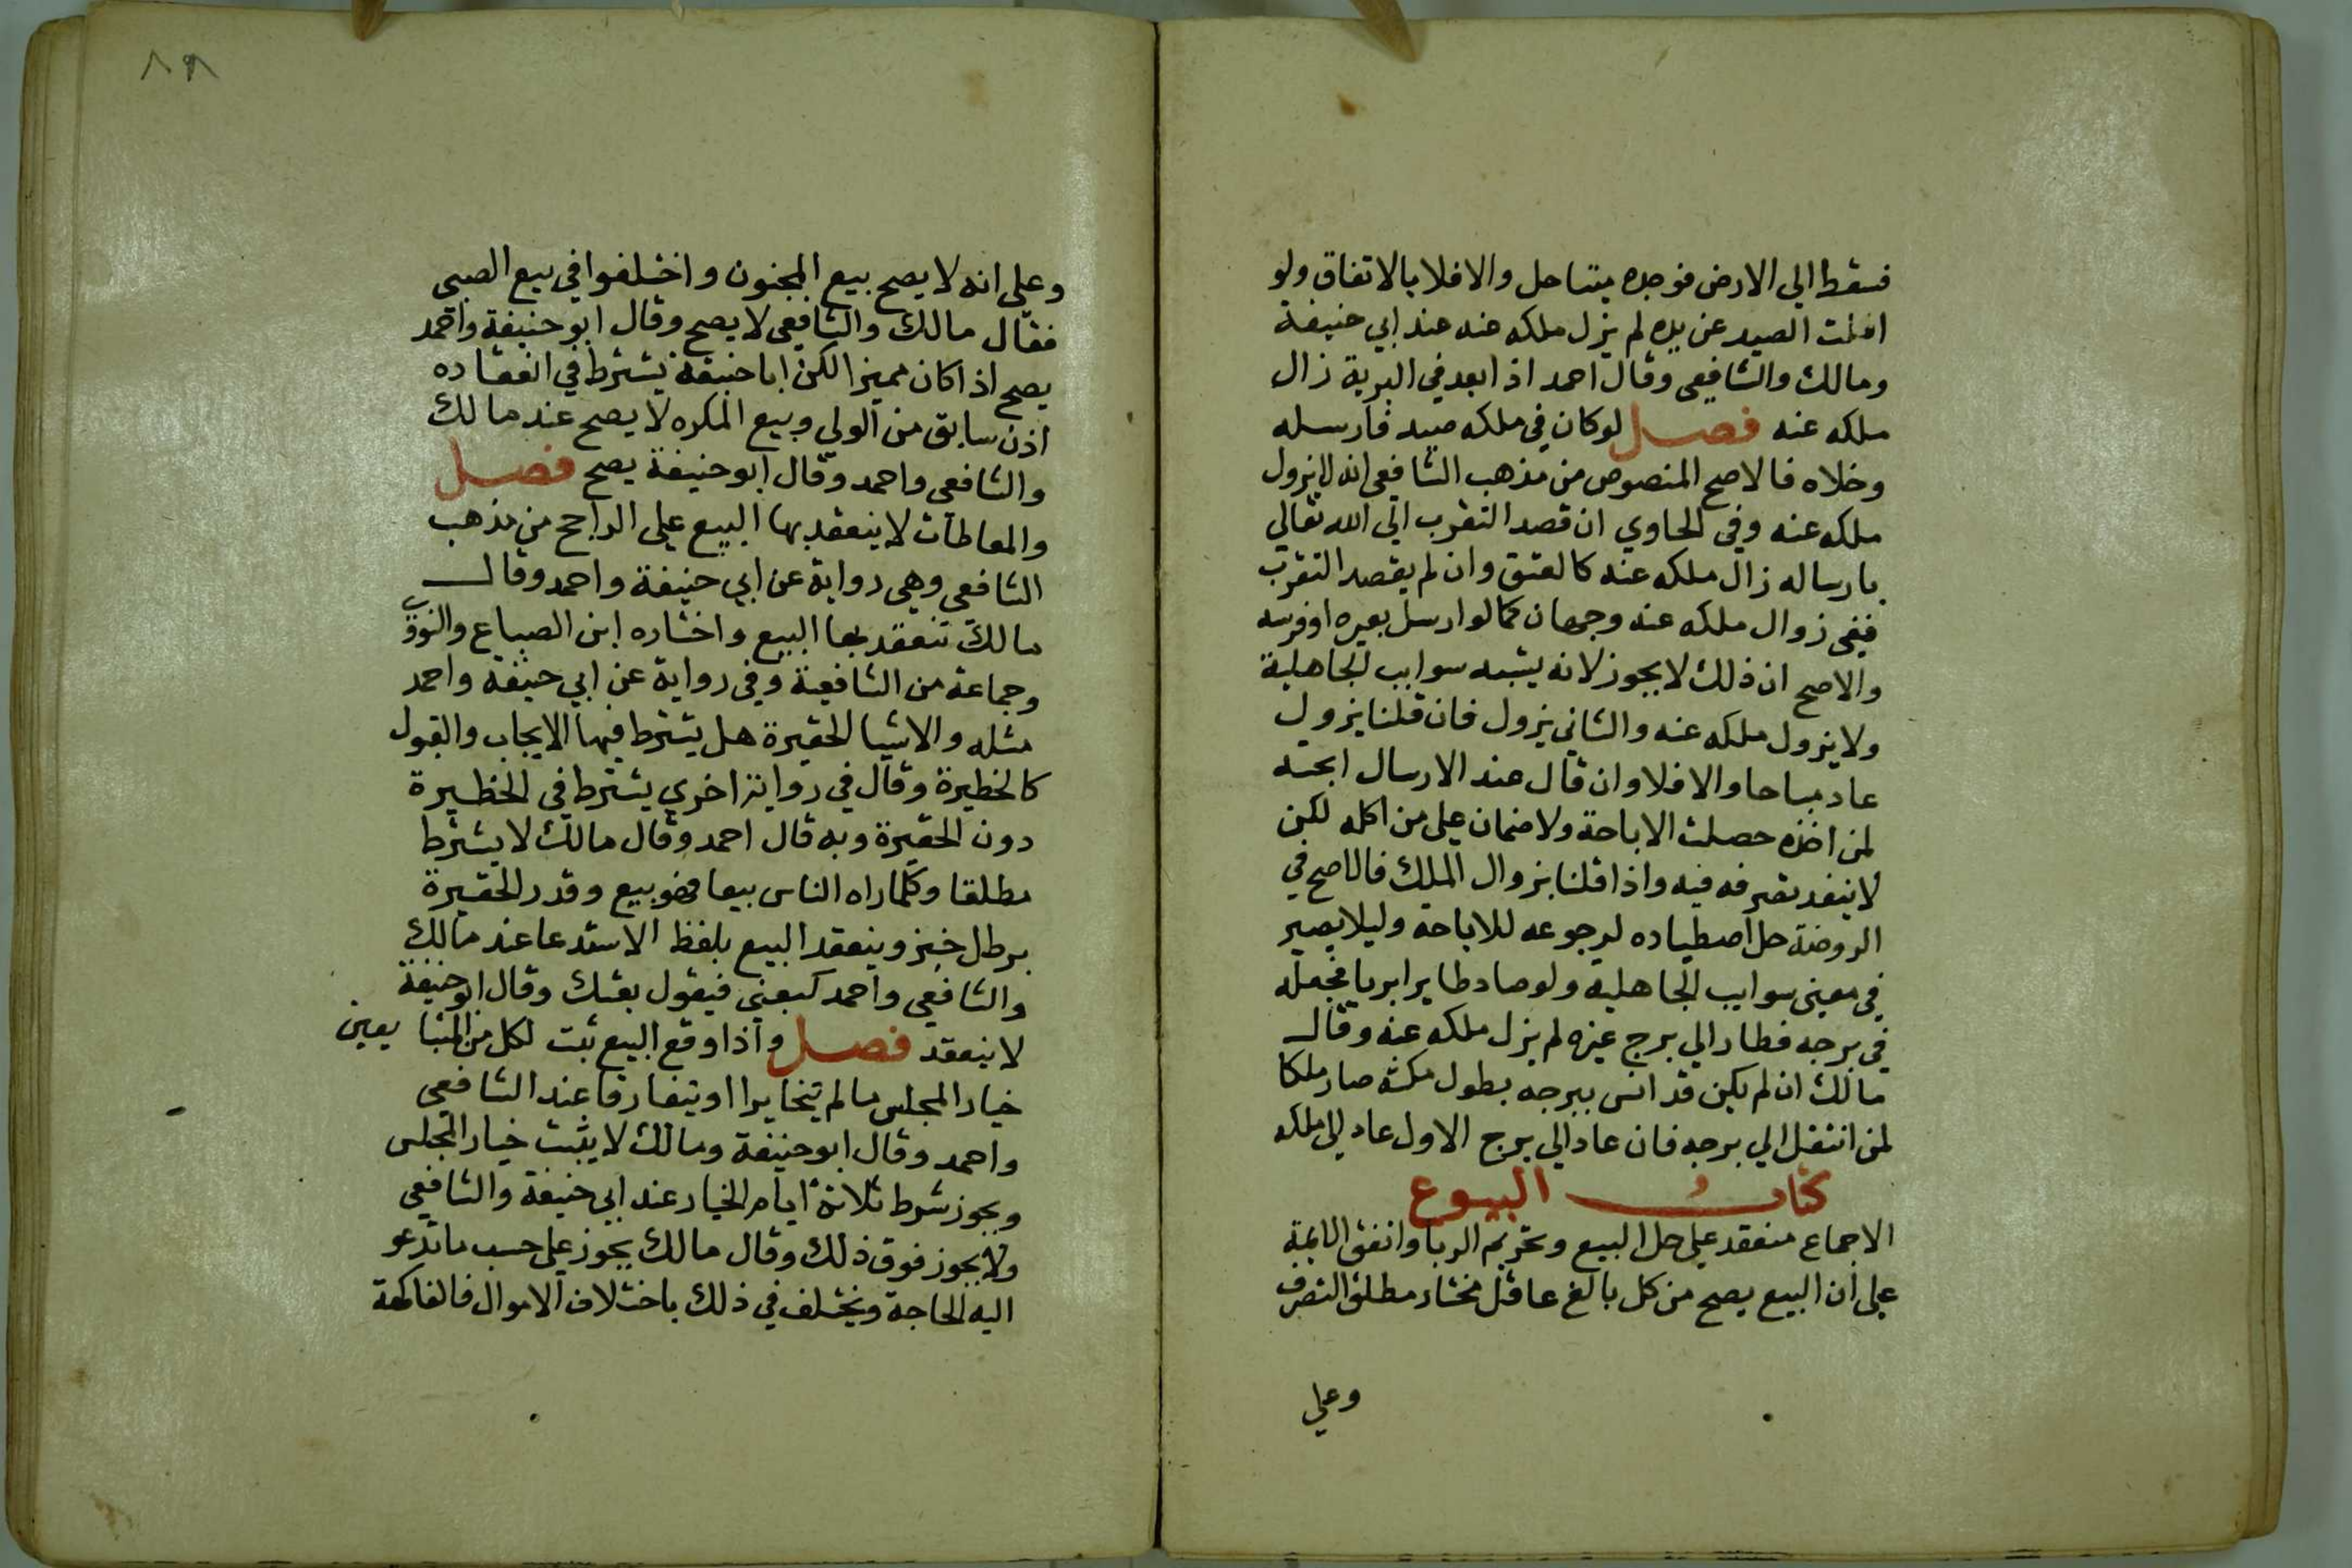 فسقط الي الارض فوجده ميتا حل والا فلا بالاتفاق ولو
افلت الصيد عن يده لم يزل ملكه عنه عند ابي حنيفة
ومالك والشافعي وقال احمد اذا ابعد في البرية زال
ملكه عنه فصل لو كان في ملكه صيد فارسله
وخلاه فالاصح المنصوص من مذهب الشافعي انه لا يزول
ملكه عنه وفي الحاوي ان قصد التقرب الي الله تعالي
بارساله زال ملكه عنه كالعتق وان لم يقصد التقرب
ففي زوال ملكه عنه وجهان كما لو ارسل بعيره او فرسه
والاصح ان ذلك لا يجوز لانه يشبه سوايب الجاهلية
ولا يزول ملكه عنه والثاني يزول فان قلنا يزول
عاد مباحا والا فلا وان قال عند الارسال ابحته
لمن اخذه حصلت الاباحة ولا ضمان علي من اكله لكن
لا ينفد تصرفه فيه واذا قلنا بزوال الملك فالاصح في
الروضة حل اصطياده لرجوعه للاباحة وليلا يصير
في معني سوايب الجاهلية ولو صاد طايرا بريا فجعله
في برجه فطار الي برج غيره لم يزل ملكه عنه وقال
مالك ان لم يكن قد انس ببرجه بطول مكثه صار ملكا
لمن انتقل الي برجه فان عاد الي برج الاول عاد الي ملكه
كتاب البيوع
الاجماع منعقد علي حل البيع وتحريم الربا واتفق الايمة
علي ان البيع يصح من كل بالغ عاقل مختار مطلق التصرف
وعلي
٨٩
وعلي انه لا يصح بيع المجنون واختلفوا في بيع الصبي
فقال مالك والشافعي لا يصح وقال ابو حنيفة واحمد
يصح اذا كان مميزا لكن ابا حنيفة يشترط في انعقاده
اذن سابق من الولي وبيع المكره لا يصح عند مالك
والشافعي واحمد وقال ابو حنيفة يصح فصل
والمعاطات لا ينعقد بها البيع علي الراجح من مذهب
الشافعي وهي رواية عن ابي حنيفة واحمد وقال
مالك تنعقد بها البيع واختاره ابن الصباع والنووي
وجماعة من الشافعية وفي رواية عن ابي حنيفة واحمد
مثله والاشيا الحقيرة هل يشترط فيها الايجاب والقبول
كالخطيرة وقال في رواية اخري يشترط في الخظيرة
دون الحقيرة وبه قال احمد وقال مالك لا يشترط
مطلقا وكلما راه الناس بيعا فهو بيع وقدر الحقيرة
برطل خبز وينعقد البيع بلفظ الاستدعا عند مالك
والشافعي واحمد كبعني فيقول بعتك وقال ابو حنيفة
لا ينعقد فصل واذا وقع البيع ثبت لكل من المتبا يعين
خيار المجلس ما لم يتخايرا او يتفارقا عند الشافعي
واحمد وقال ابو حنيفة ومالك لا يثبت خيار المجلس
ويجوز شرط ثلاثة ايام الخيار عند ابي حنيفة والشافعي
ولا يجوز فوق ذلك وقال مالك يجوز علي حسب ما تدعو
اليه الحاجة ويختلف في ذلك باختلاف الاموال فالفاكهة